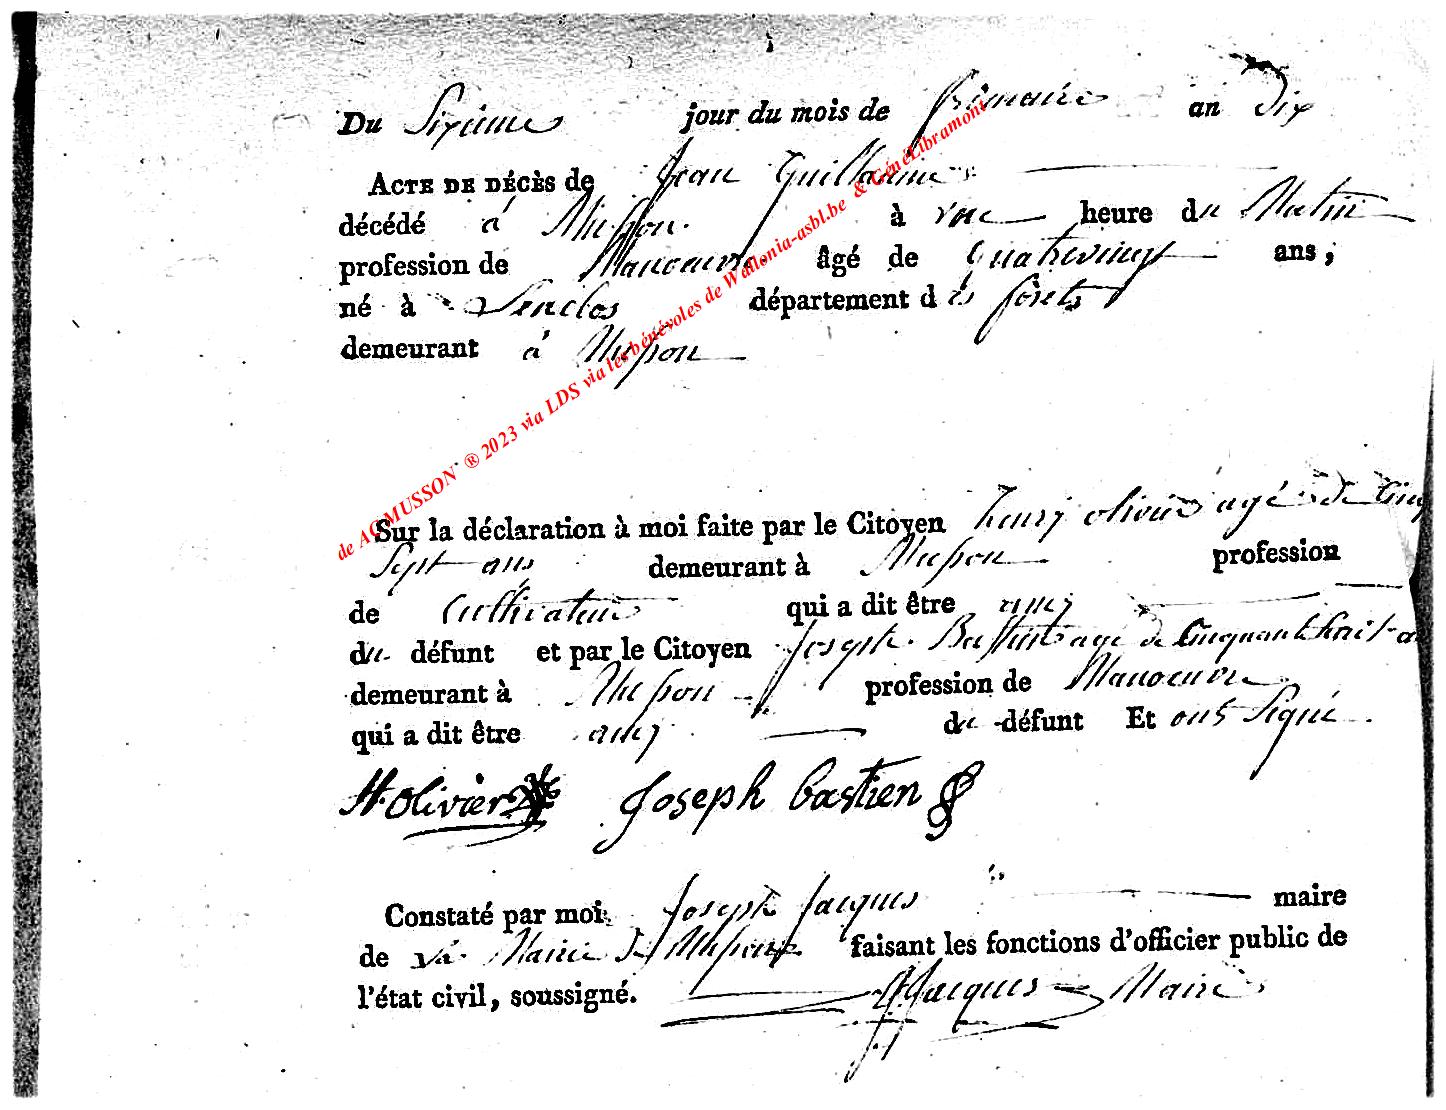 Du Sixieme jour du mois de frimaire an Dix
ACTE DE DÉCÈS de Jean Guillaume
décédé à Musson à une heure du Matin
profession de Manoeuvre âgé de Quatrevingt ans ;
né à département des forêts
demeurant à Musson
Sur la déclaration à moi faite par le Citoyen henry olivier agé de Cinq
Sept ans demeurant à Musson profession
de Cultivateur qui a dit être amy
du défunt et par le Citoyen Joseph Bastien agé de Cinquante huit a
demeurant à Musson profession de Manoeuvre
qui a dit être amy du défunt Et ont Signé
H. Olivier Joseph bastien
Constaté par moi Joseph Jacques maire
de la Mairie de Musson faisant les fonctions d'officier public de
l'état civil, soussigné. Jacques Maire
de AC MUSSON ® 2023 via LDS via les bénévoles de Wallonia-asbl.be & GénéLibramont